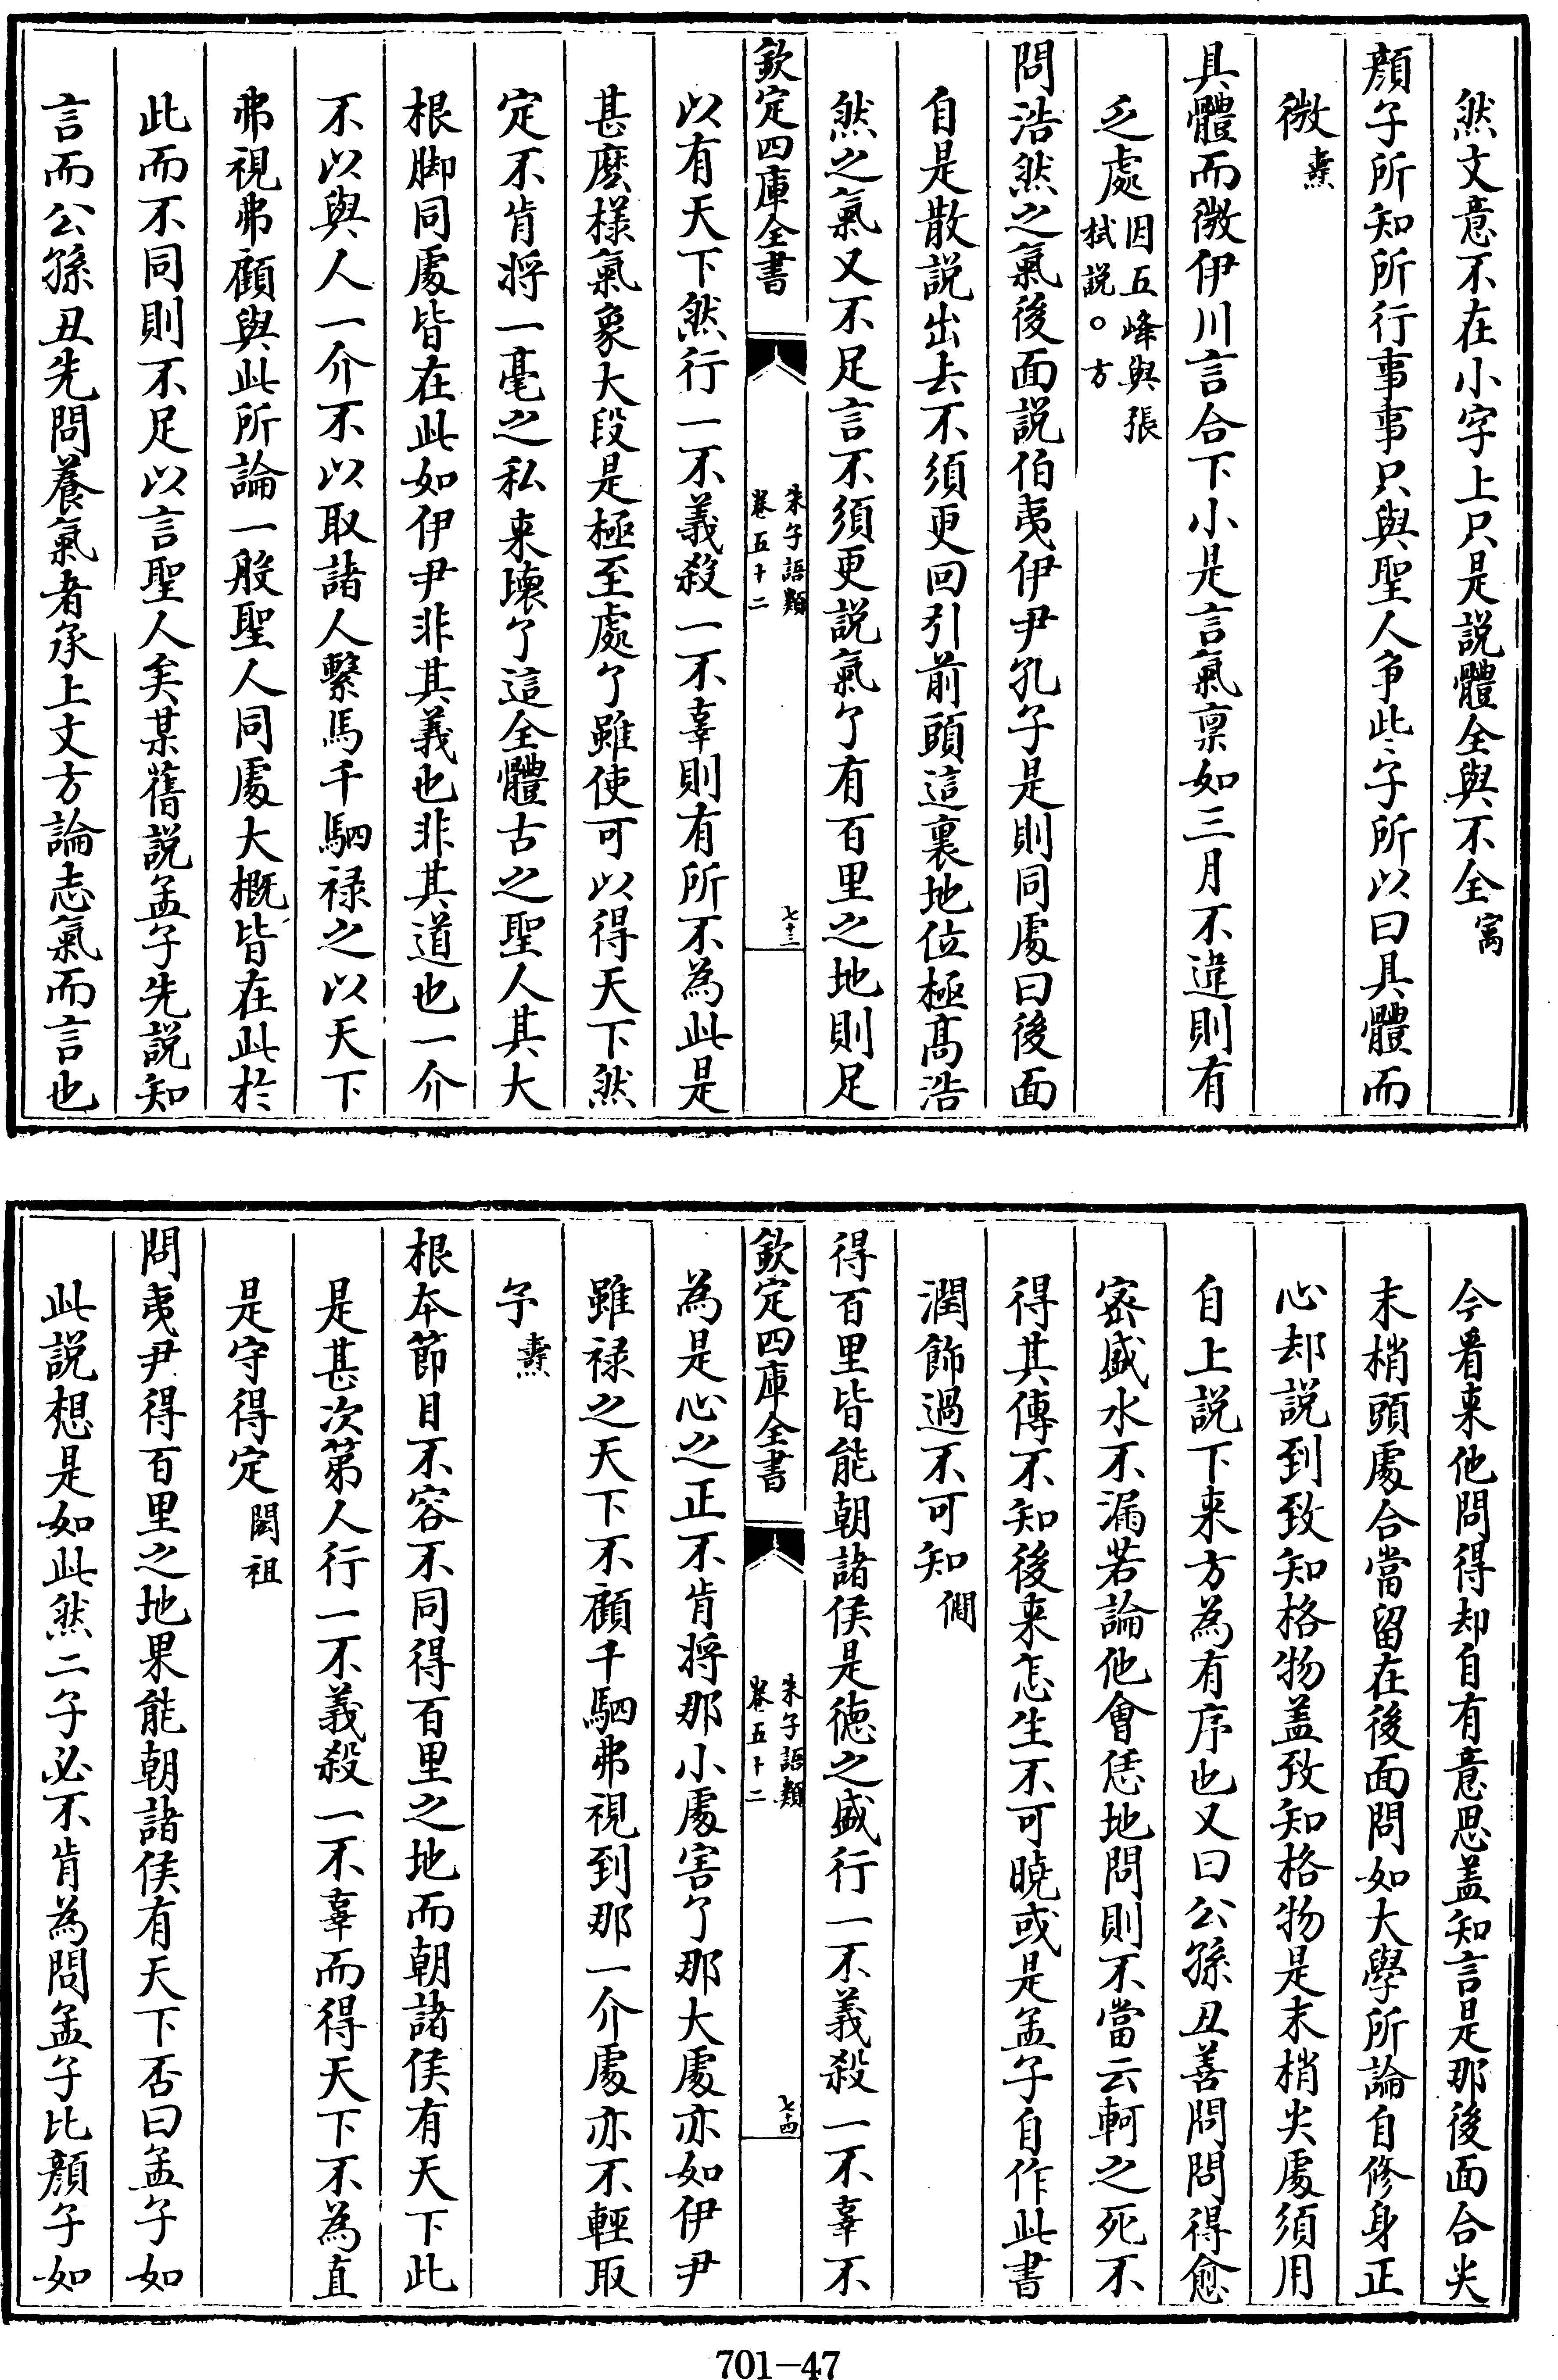 然文意不在小字上只是說體全與不全㝢
顔子所知所行事事只與聖人争此〻子所以曰具體而
微燾
具體而微伊川言合下小是言氣禀如三月不違則有
乏處因五峰與張栻說。方
問浩然之氣後面說伯夷伊尹孔子是則同處曰後面
自是散說出去不須更回引前頭這裏地位極髙浩
然之氣又不足言不須更說氣了有百里之地則足
欽定四庫全書
朱子語類
卷五十二
七十三
以有天下然行一不義殺一不辜則有所不為此是
甚麽様氣象大段是極至處了雖使可以得天下然
定不肯将一毫之私来壊了這全體古之聖人其大
根脚同處皆在此如伊尹非其義也非其道也一介
不以與人一介不以取諸人繫馬千駟禄之以天下
弗視弗顧與此所論一般聖人同處大概皆在此於
此而不同則不足以言聖人矣某舊說孟子先說知
言而公孫丑先問養氣者承上文方論志氣而言也
今看来他問得却自有意思盖知言是那後面合尖
末梢頭處合當留在後面問如大學所論自修身正
心却說到致知格物盖致知格物是末梢尖處須用
自上說下来方為有序也又曰公孫丑善問問得愈
密盛水不漏若論他會恁地問則不當云軻之死不
得其傳不知後来怎生不可曉或是孟子自作此書
潤飾過不可知僩
得百里皆能朝諸侯是德之盛行一不義殺一不辜不
欽定四庫全書
朱子語類
卷五十二
七十四
為是心之正不肯將那小處害了那大處亦如伊尹
雖禄之天下不顧千駟弗視到那一介處亦不輕取
予燾
根本節目不容不同得百里之地而朝諸侯有天下此
是甚次第人行一不義殺一不辜而得天下不為直
是守得定閎祖
問夷尹得百里之地果能朝諸侯有天下否曰孟子如
此說想是如此然二子必不肯為問孟子比顔子如
701-47